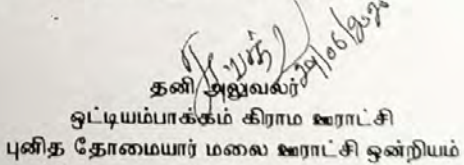 தனி அலுவலர்
ஒட்டியம்பாக்கம் கிராம ஊராட்சி
புனித தோமையார் மலை ஊராட்சி ஒன்றியம்